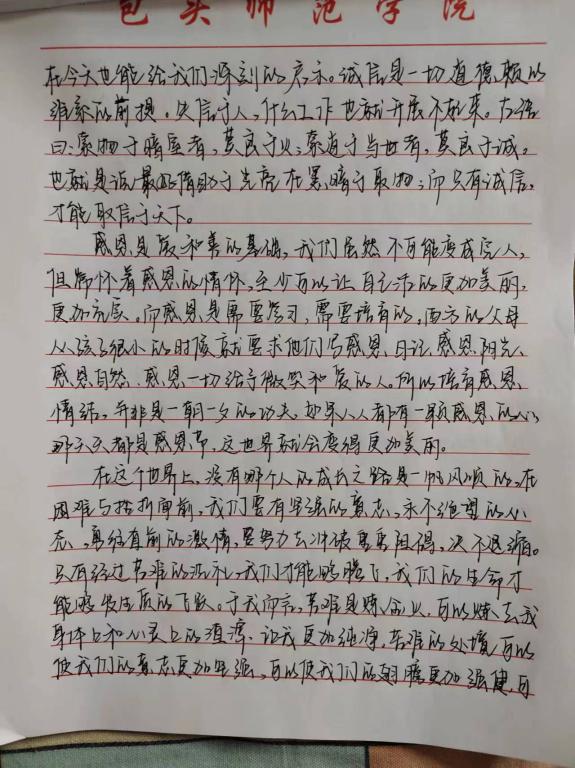 包头师范学院
在今天也能给我们深刻的启示。诚信是一切道德赖以
维系的前提。失信于人,什么工作也就开展不起来。古语
曰:索物于暗室者,莫良于火;索道于当世者,莫良于诚。
也就是说最好借助于光亮在黑暗于取物;而只有诚信,
才能取信于天下。
感恩是爱和善的基础,我们虽然不可能变成完人,
但常怀着感恩的情怀,至少可以让自己活的更加美丽,
更加充实。而感恩是需要学习,需要培育的,西方的父母
从孩子很小的时候就要求他们写感恩日记,感恩阳光、
感恩自然、感恩一切给予微笑和爱的人。所以培育感恩
情结,并非是一朝一夕的功夫。如果人人都有一颗感恩的心,
那天天都是感恩节,这世界就会变得更加美丽。
在这个世界上,没有哪个人的成长之路是一帆风顺的,在
困难与挫折面前,我们要有坚强的意志,永不绝望的心
态,勇往直前的激情,要努力去冲破重重阻碍,决不退缩。
只有经过苦难的洗礼,我们才能够腾飞,我们的生命才
能够发生质的飞跃。于我而言,苦难是炼金火,可以炼去我
身体上和心灵上的渣滓,让我更加纯净,苦难的处境可以
使我们的意志更加坚强,可以使我们的翅膀更加强健,可